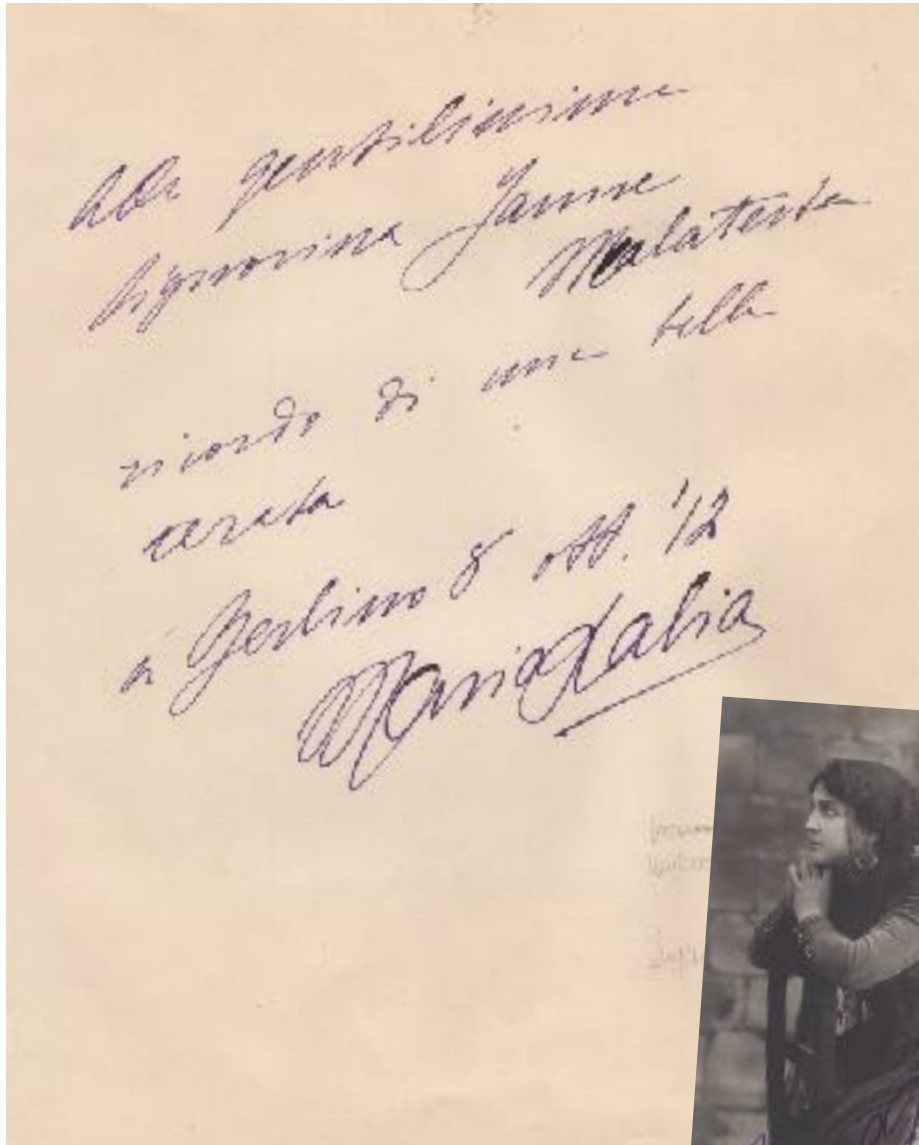 Alla gentilissima
Signorina Janne
Malatesta
ricordo di una bella
serata
a Berlino 8 ott. '12
Maria Labia